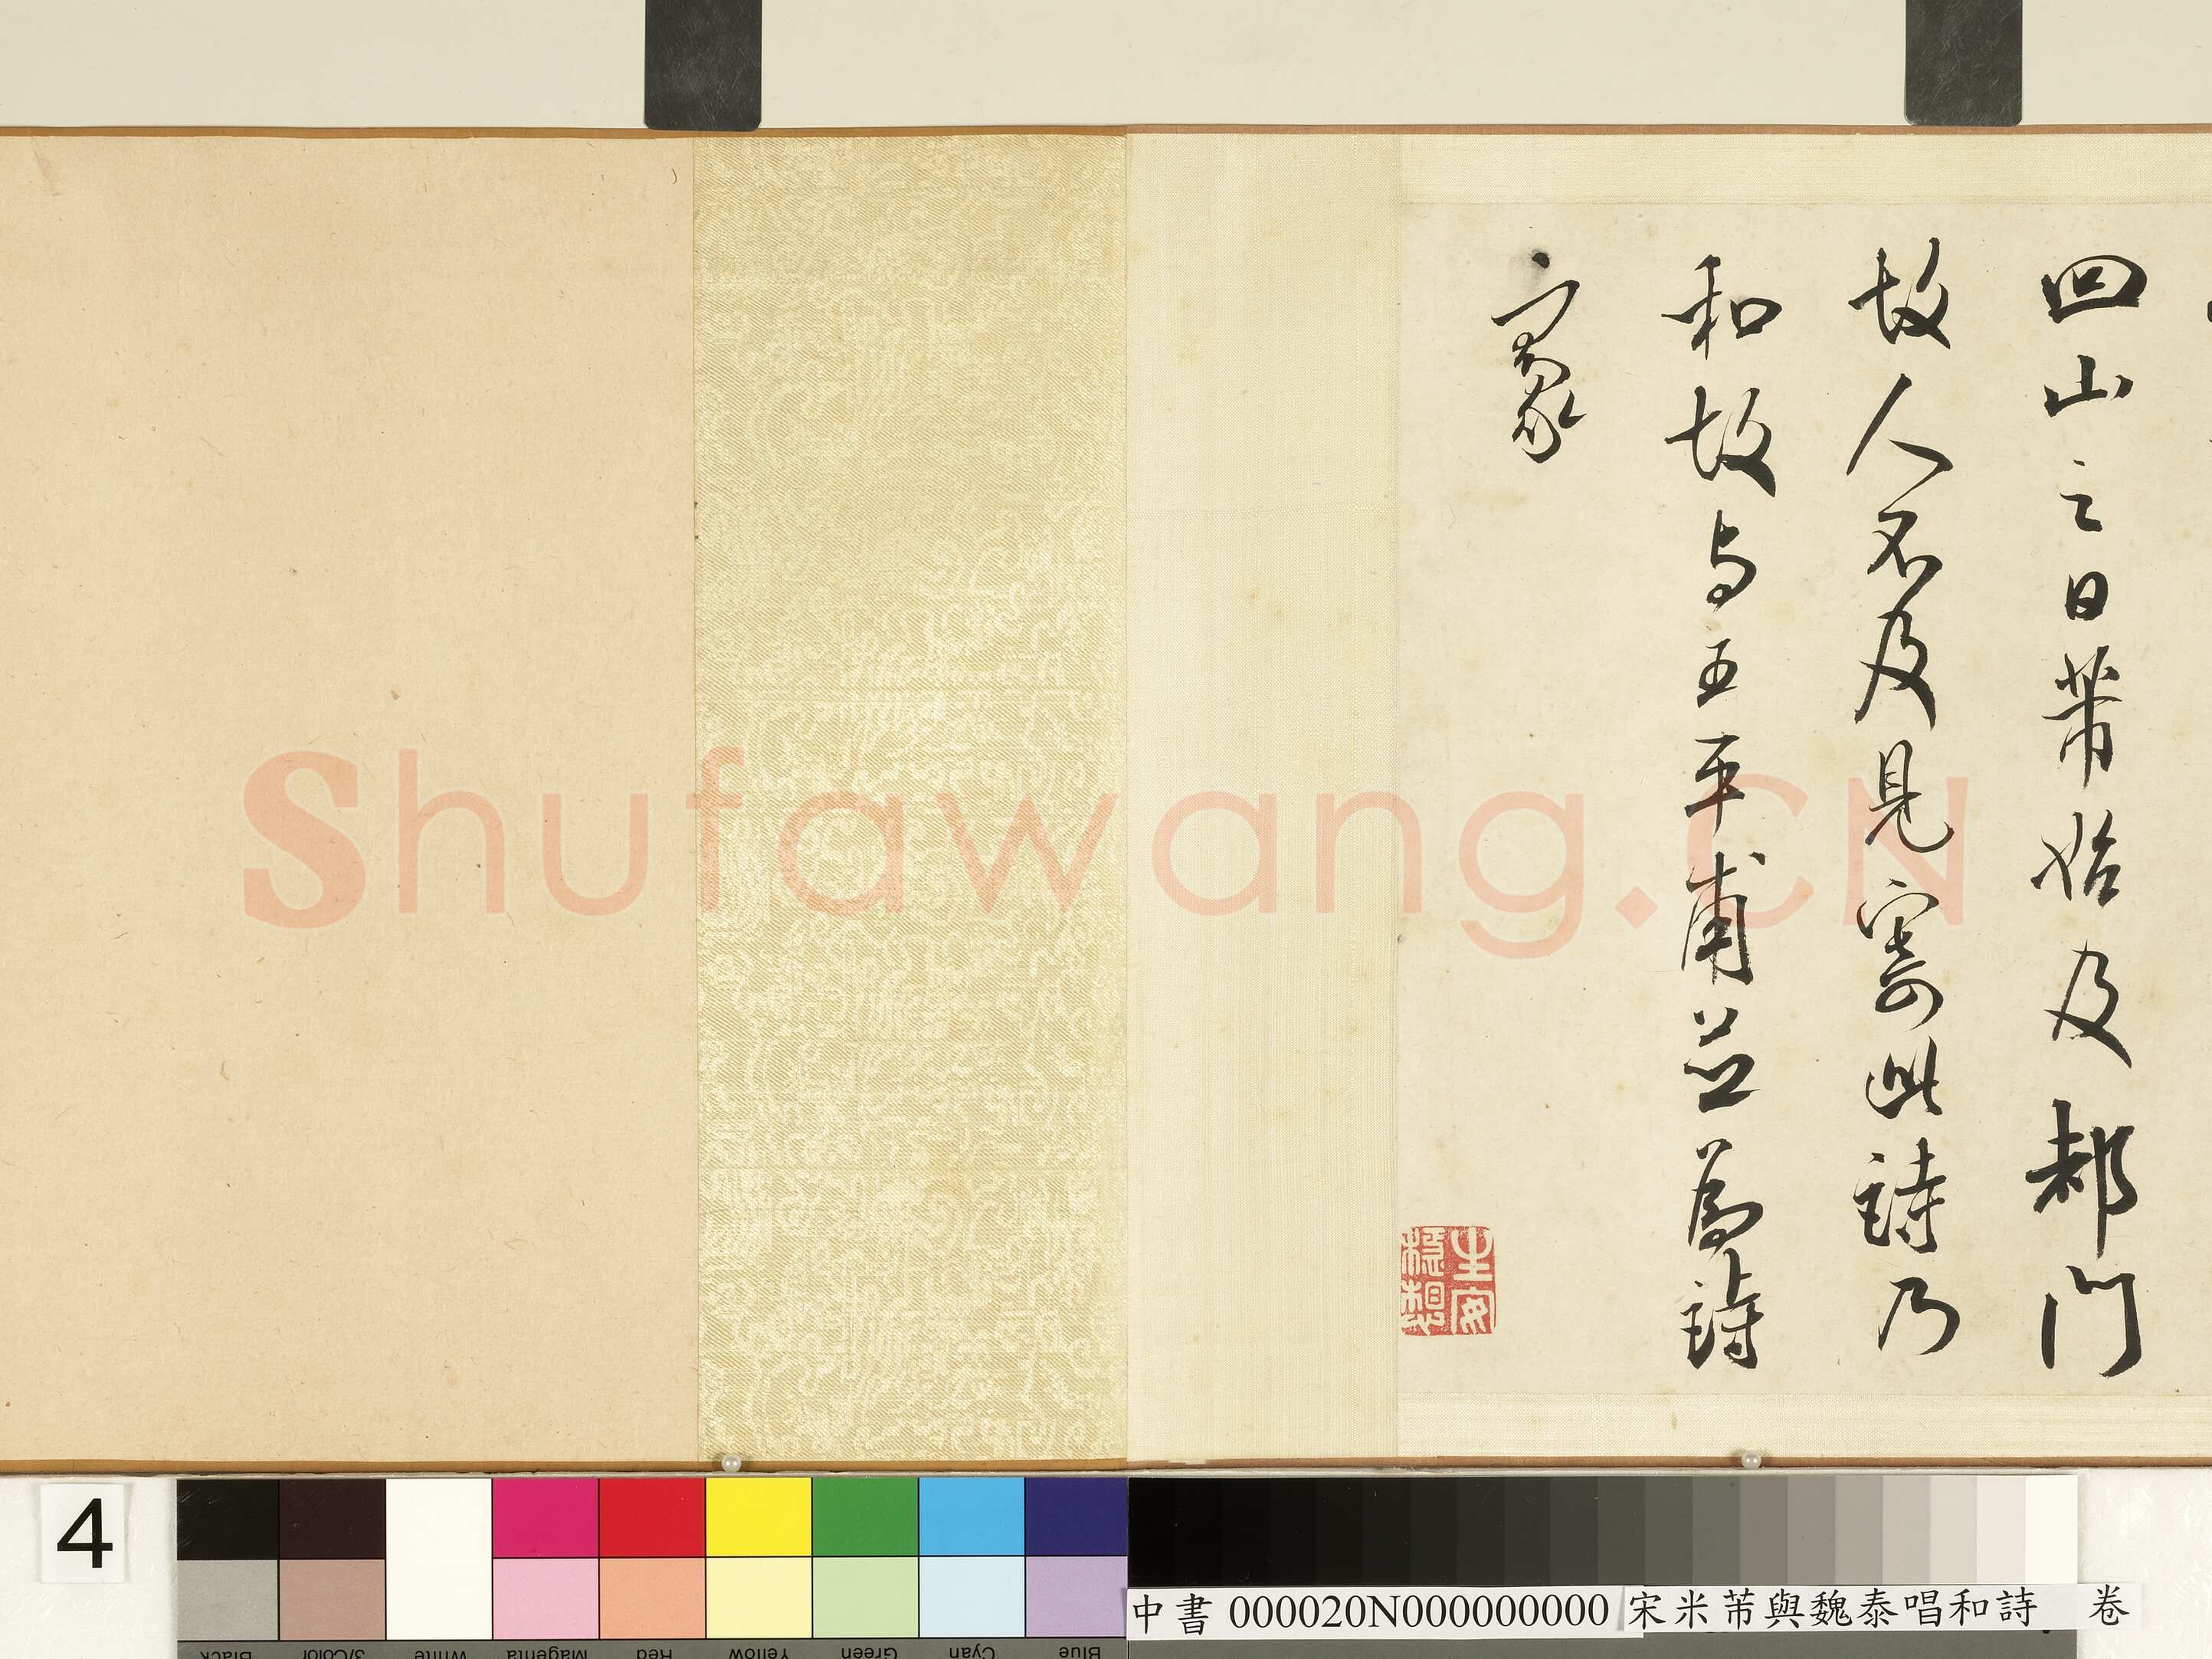 回山之日芾始及都門
故人不及見寄此詩乃
和故与王平甫並為詩
豪
Shufawang.CN
4
中書 000020N000000000 宋米芾與魏泰唱和詩 卷
Blue Cyan Green Yellow Red Magenta White 3/Color Black